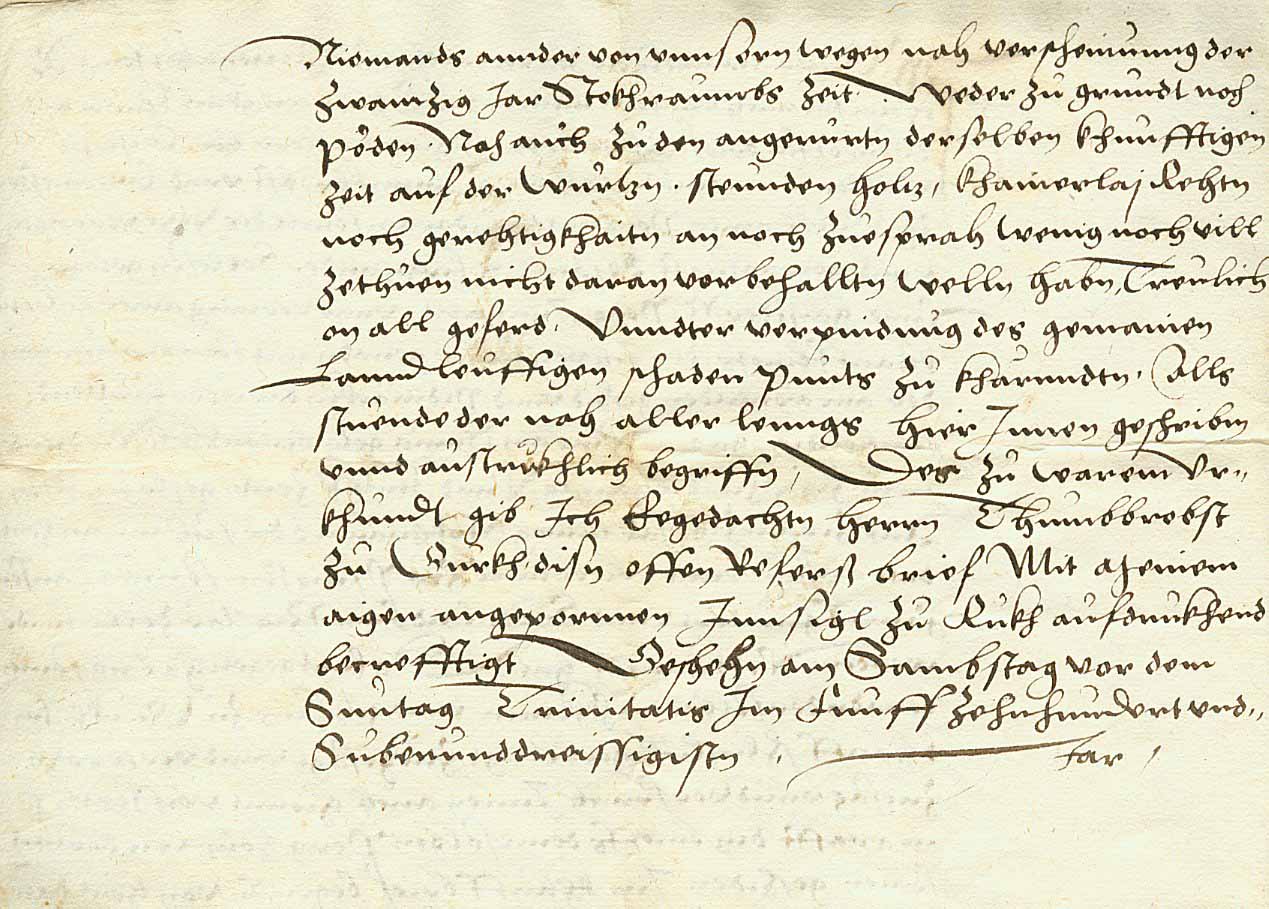 Niemands annder von unnsern wegen nah verscheinung der
zwainzig Jar Stokhraumbs zeit. Weder zu grundt noch
pöden. Noh auch zu den angerurtn derselben khunfftigen
zeit auf der wurtzn. steunden holtz, khainerlaj Rehtn
noch gerehtigkhaitn an noch zuesprah wenig noch vill
zethuen nicht daran vorbehalltn welln habn, Treulich
on all geferd. Unndter verpindnug des gemainen
Lanndleuffigen schaden punts zu kharundtn. Alls
stuende der nah aller lenngs hier Innen geschribm
unnd austrukhlich begriffn, Des zu warem Ur-
khundt gib Ich Egedachtn herrn Thumbbrobst
zu Gurkh disn offen Referß brief Mit meinem
aigen angepornnen Innsigl zu Rukh aufdrukhend
becrefftigt Geshehn am Sambstag vor dem
Suntag Trinitatis Im Funffzehnhundert und-
Subenunddreissigistn Jar,